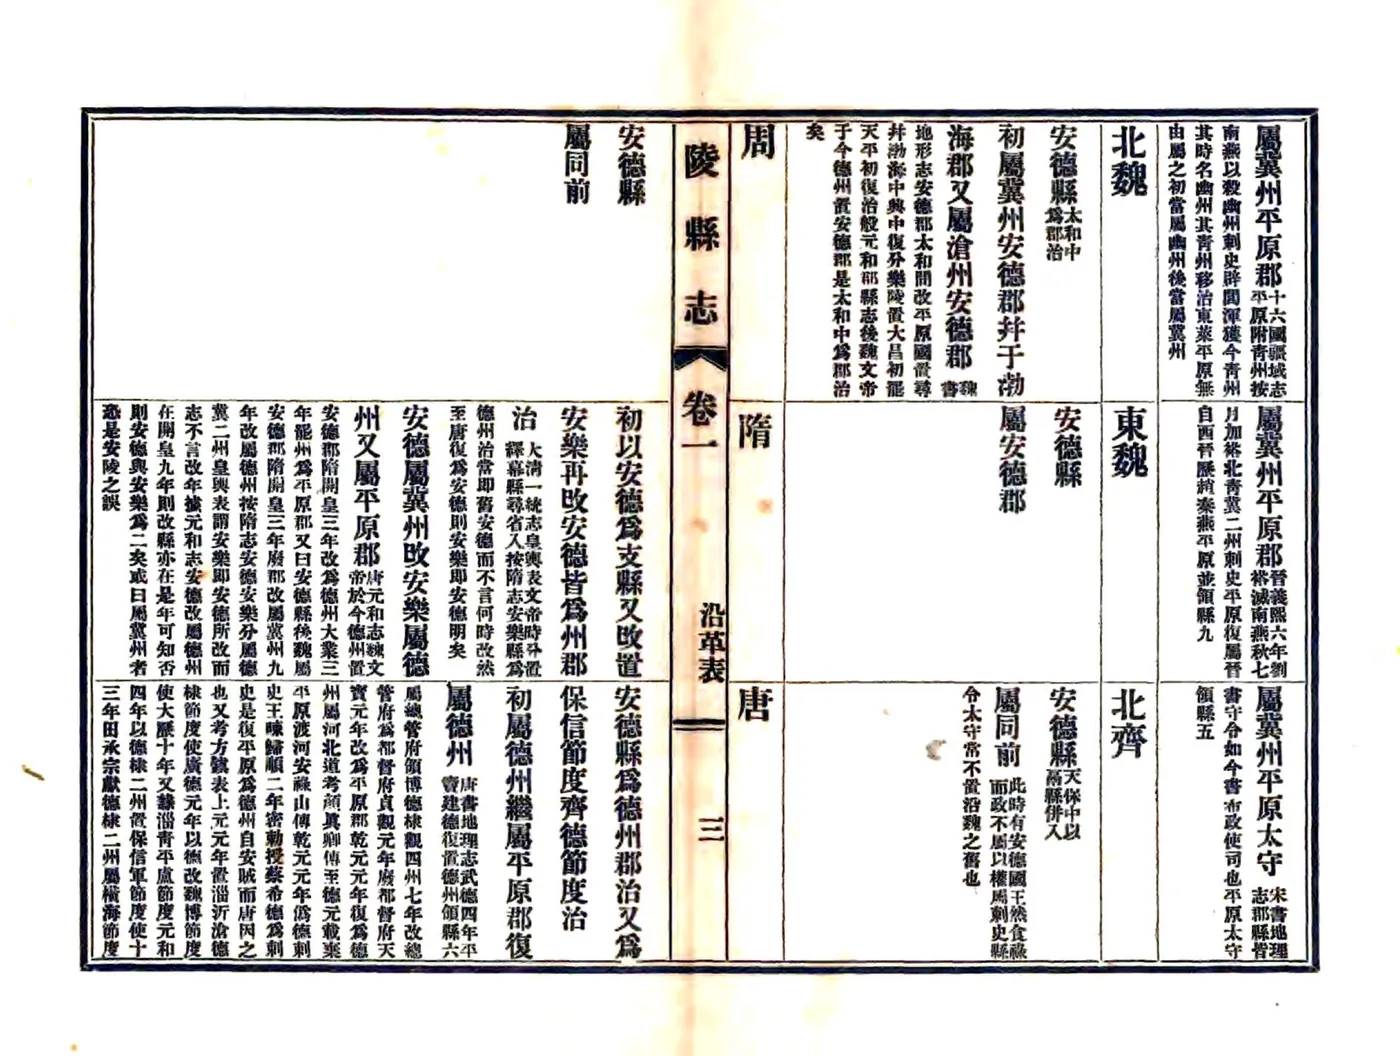 屬冀州平原郡十六國疆域志
平原附青州按
南燕以殺幽州刺史辟閭渾獲今青州
其時名幽州其青州移治東萊平原無
由屬之初當屬幽州後當屬冀州
屬冀州平原郡晉義熙六年劉
裕滅南燕秋七
月加裕北青冀二州刺史平原復屬晉
自西晉歷趙秦燕平原並領縣九
屬冀州平原太守宋書地理
志郡縣皆
書守令如今書布政使司也平原太守
領縣五
北魏
安德縣太和中
爲郡治
初屬冀州安德郡幷于渤
海郡又屬滄州安德郡魏
書
地形志安德郡太和間改平原國置尋
幷渤海中興中復分樂陵置大昌初罷
天平初復治般元和郡縣志後魏文帝
于今德州置安德郡是太和中爲郡治
矣
東魏
安德縣
屬安德郡
北齊
安德縣天保中以
鬲縣併入
屬同前此時有安德國王然食祿
而政不屬以權屬刺史縣
令太守當不置沿魏之舊也
周
隋
唐
陵縣志
卷一
沿革表
三
安德縣
屬同前
初以安德爲支縣又改置
安樂再改安德皆爲州郡
治大淸一統志皇輿表文帝時分置
繹幕縣尋省入按隋志安樂縣爲
德州治當即舊安德而不言何時改然
至唐復爲安德則安樂即安德明矣
安德屬冀州改安樂屬德
州又屬平原郡唐元和志魏文
帝於今德州置
安德郡隋開皇三年改爲德州大業三
年罷州爲平原郡又曰安德縣後魏屬
安德郡隋開皇三年廢郡改屬冀州九
年改屬德州按隋志安德安樂分屬德
冀二州皇輿表謂安樂即安德所改而
志不言改年據元和志安德改屬德州
在開皇九年則改縣亦在是年可知否
則安德與安樂爲二矣或曰屬冀州者
恐是安陵之誤
安德縣爲德州郡治又爲
保信節度齊德節度治
初屬德州繼屬平原郡復
屬德州唐書地理志武德四年平
竇建德復置德州領縣六
屬總管府領博德棣觀四州七年改總
管府爲都督府貞觀元年廢都督府天
寶元年改爲平原郡乾元元年復爲德
州屬河北道考顔眞卿傳至德元載棄
平原渡河安祿山傳乾元元年僞德刺
史王暕歸順二年密勅授蔡希德爲刺
史是復平原爲德州自安賊而唐因之
也又考方鎮表上元元年置淄沂滄德
棣節度使廣德元年以德改魏博節度
使大歷十年又隸淄靑平盧節度元和
四年以德棣二州置保信軍節度使十
三年田承宗獻德棣二州屬橫海節度